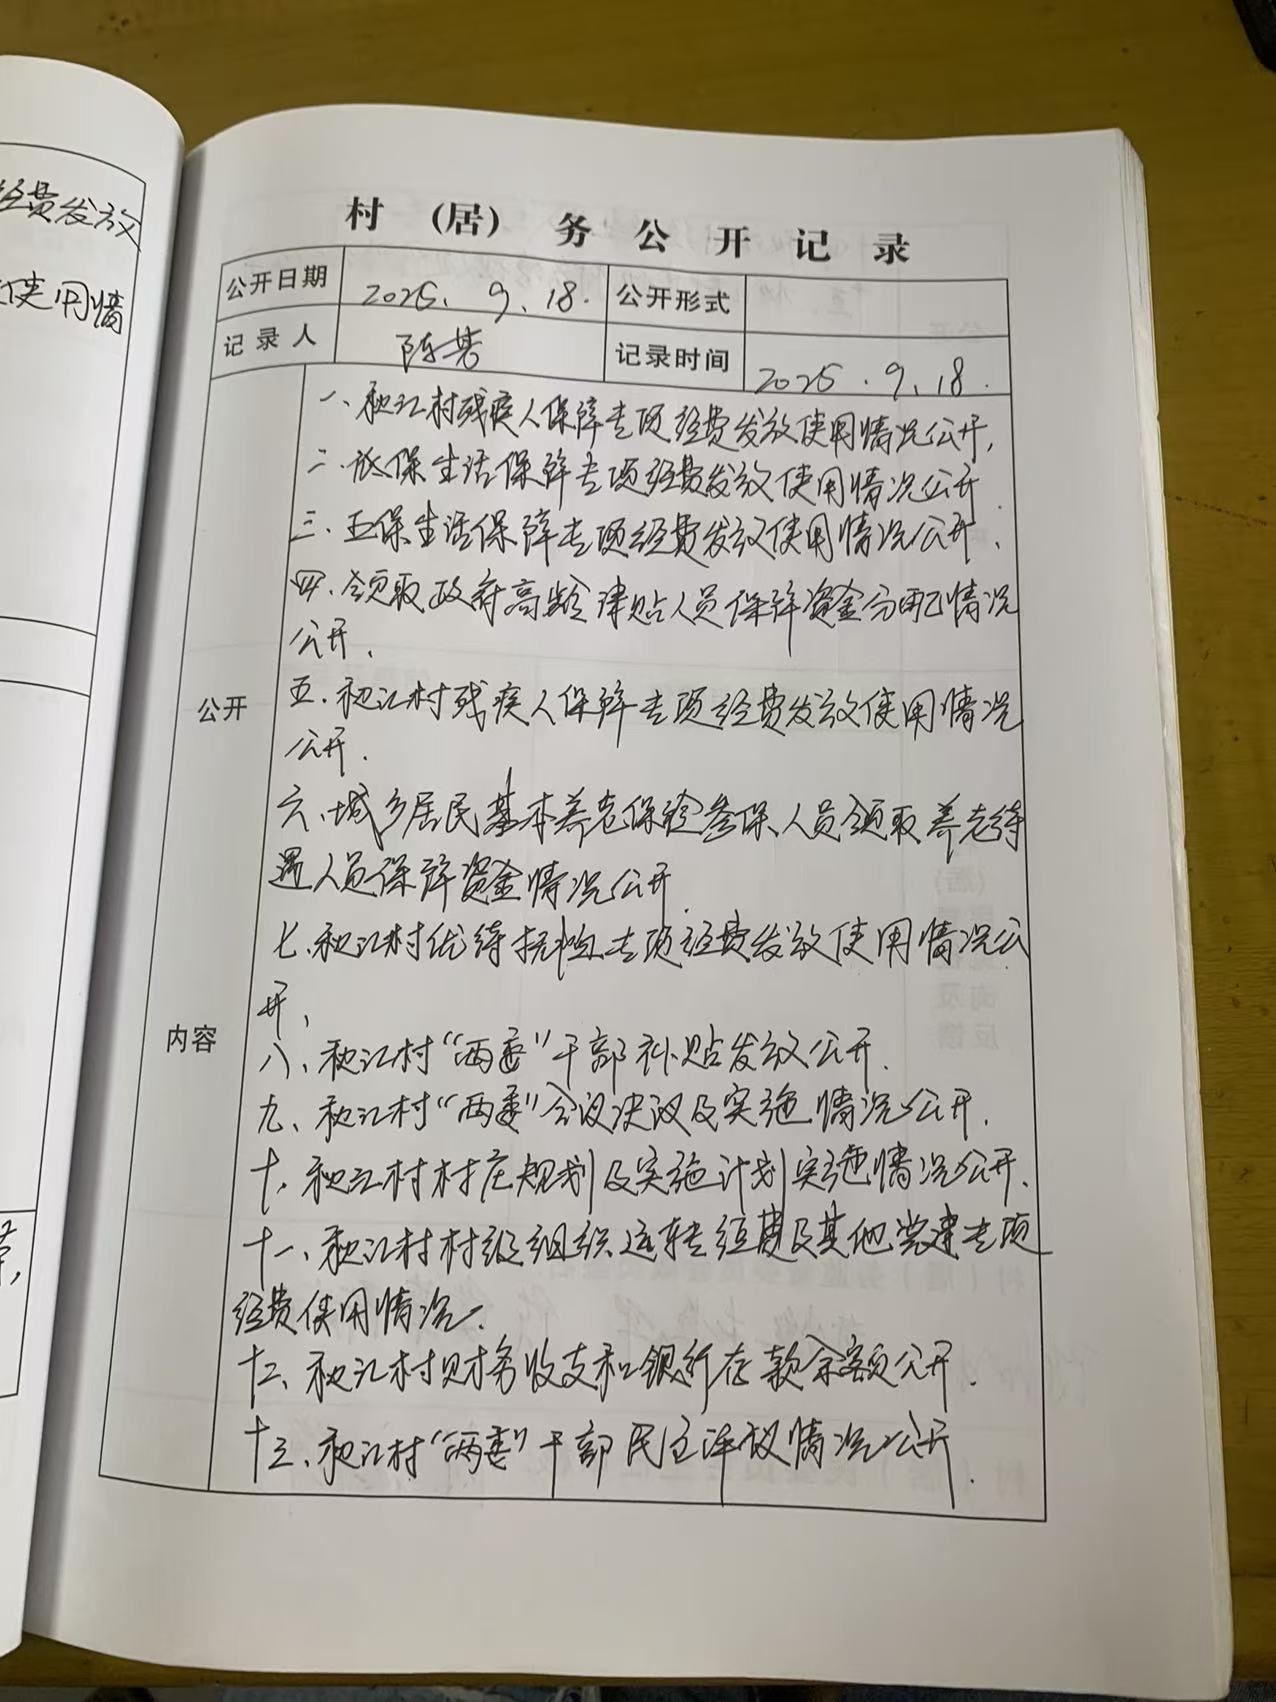 经费发放
使用情
村（居）务公开记录
公开日期 2025.9.18. 公开形式
记录人 陈某 记录时间 2025.9.18.
一、秋江村残疾人保障专项经费发放使用情况公开.
二.低保生活保障专项经费发放使用情况公开.
三.五保生活保障专项经费发放使用情况公开.
四.领取政府高龄津贴人员保障资金分配情况
公开.
公开
五.秋江村残疾人保障专项经费发放使用情况
公开.
六、城乡居民基本养老保险参保人员领取养老待
遇人员保障资金情况公开.
七.秋江村优待抚恤专项经费发放使用情况公
开、
内容
八、秋江村“两委”干部补贴发放公开.
九、秋江村“两委”会议决议及实施情况公开.
十、秋江村村庄规划及实施计划实施情况公开.
十一、秋江村村级组织运转经费及其他党建专项
经费使用情况.
十二、秋江村财务收支和银行存款余额公开.
十三、秋江村“两委”干部民主评议情况公开.